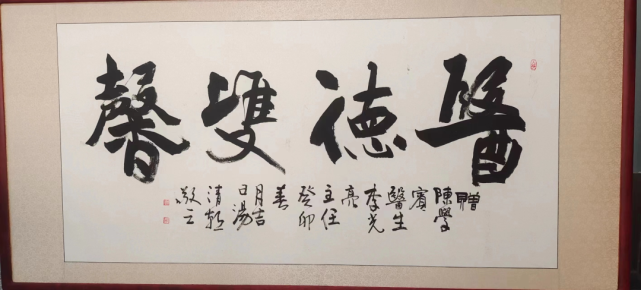 醫德雙馨
贈
陳學
賓
醫生
李光
亮
主任
癸卯
春
月吉
日湯
清
敬